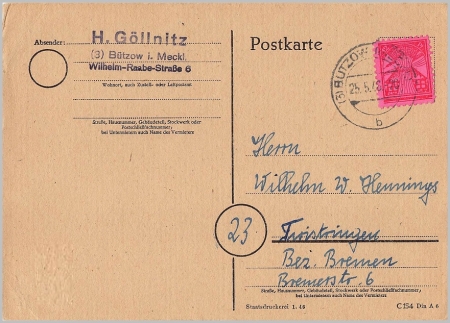 Absender:
H. Göllnitz
(3) Bützow i. Meckl.
Wilhelm-Raabe-Straße 6
Wohnort, auch Zustell- oder Leitpostamt
Straße, Hausnummer, Gebäudeteil, Stockwerk oder
Postschließfachnummer;
bei Untermietern auch Name des Vermieters
Postkarte
(3) BÜTZOW
25.5.
b
Herrn
Wilhelm W. Hennings
23
Twistringen
Bez. Bremen
Bremerstr. 6
Straße, Hausnummer, Gebäudeteil, Stockwerk oder Postschließfachnummer;
bei Untermietern auch Name des Vermieters
Staatsdruckerei 1. 46
C 154 Din A 6